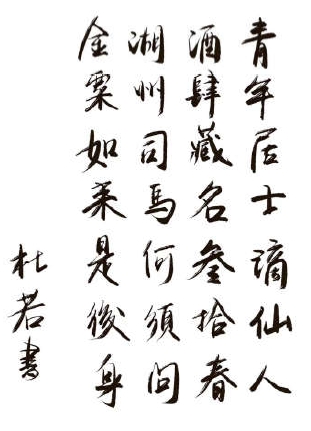 青年居士谪仙人
酒肆藏名叁拾春
湖州司馬何須问
金粟如来是後身
杜若書